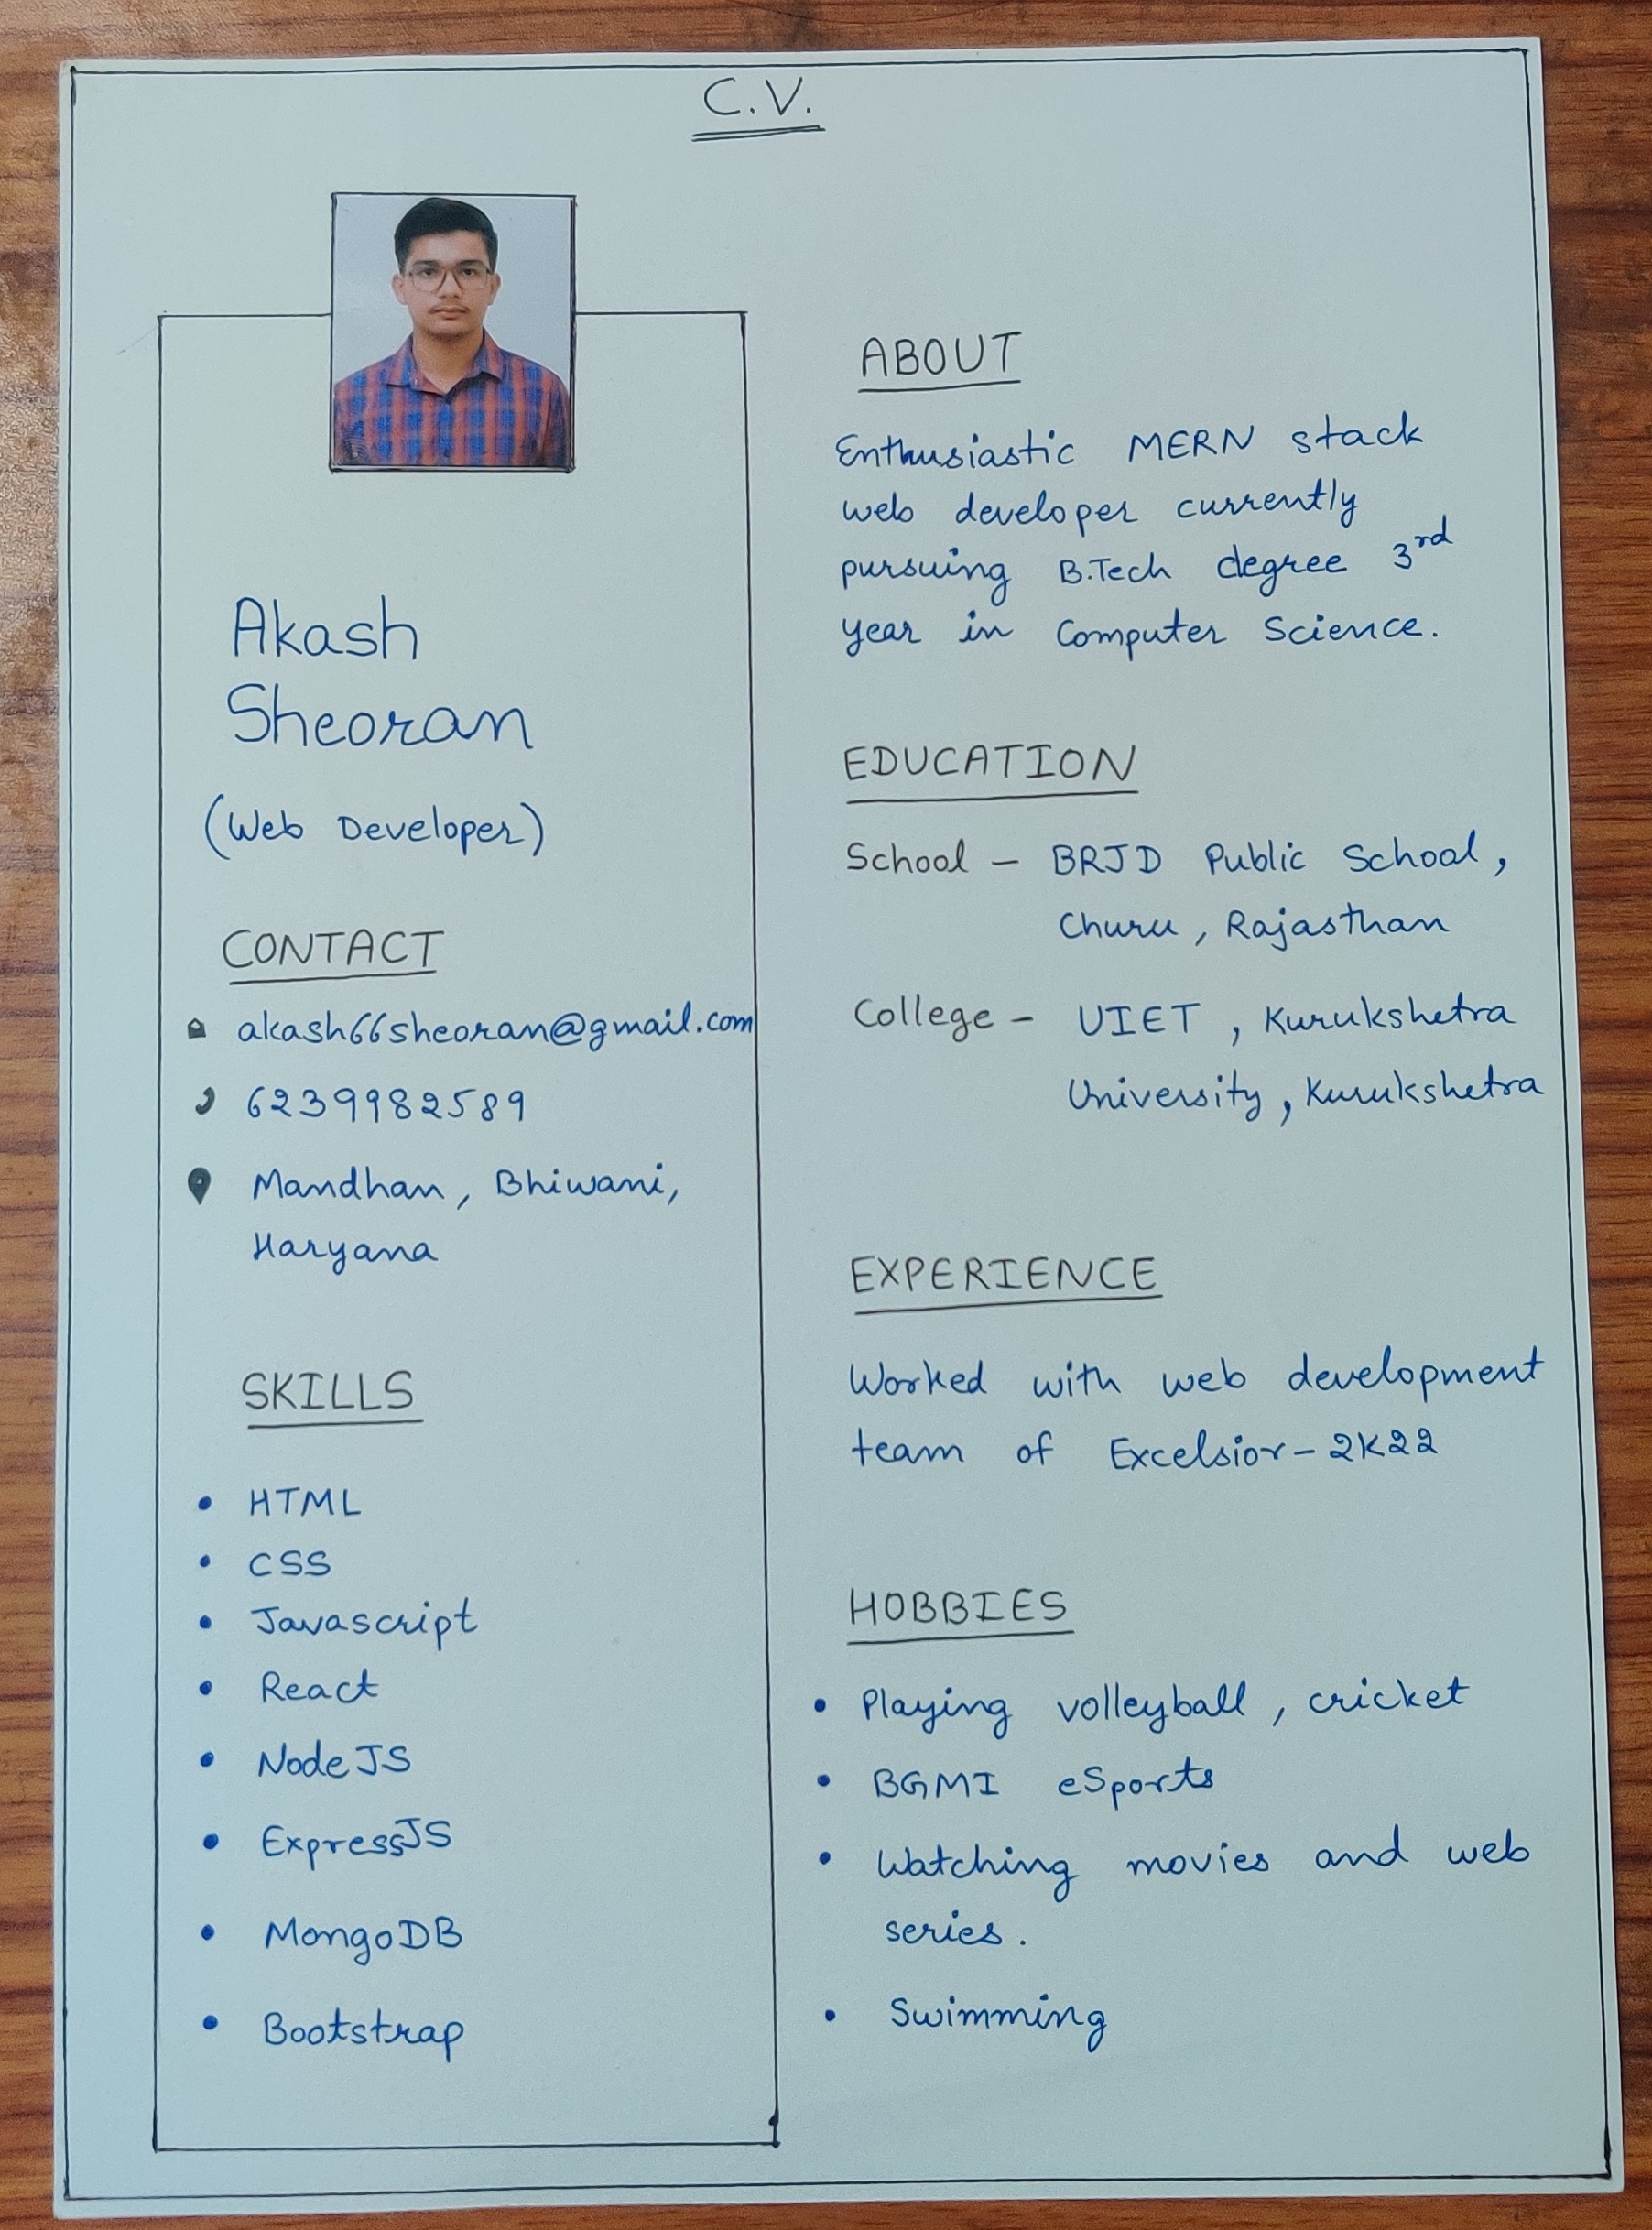 C.V.
Akash
Sheoran
(Web Developer)
CONTACT
akash66sheoran@gmail.com
6239982589
Mandhan, Bhiwani,
Haryana
SKILLS
• HTML
• CSS
• Javascript
• React
• NodeJS
• ExpressJS
• MongoDB
• Bootstrap
ABOUT
Enthusiastic MERN stack
web developer currently
pursuing B.Tech degree 3rd
year in Computer Science.
EDUCATION
School - BRJD Public School,
Churu, Rajasthan
College - UIET, Kurukshetra
University, Kurukshetra
EXPERIENCE
Worked with web development
team of Excelsior-2K22
HOBBIES
• Playing volleyball, cricket
• BGMI eSports
• Watching movies and web
series.
• Swimming